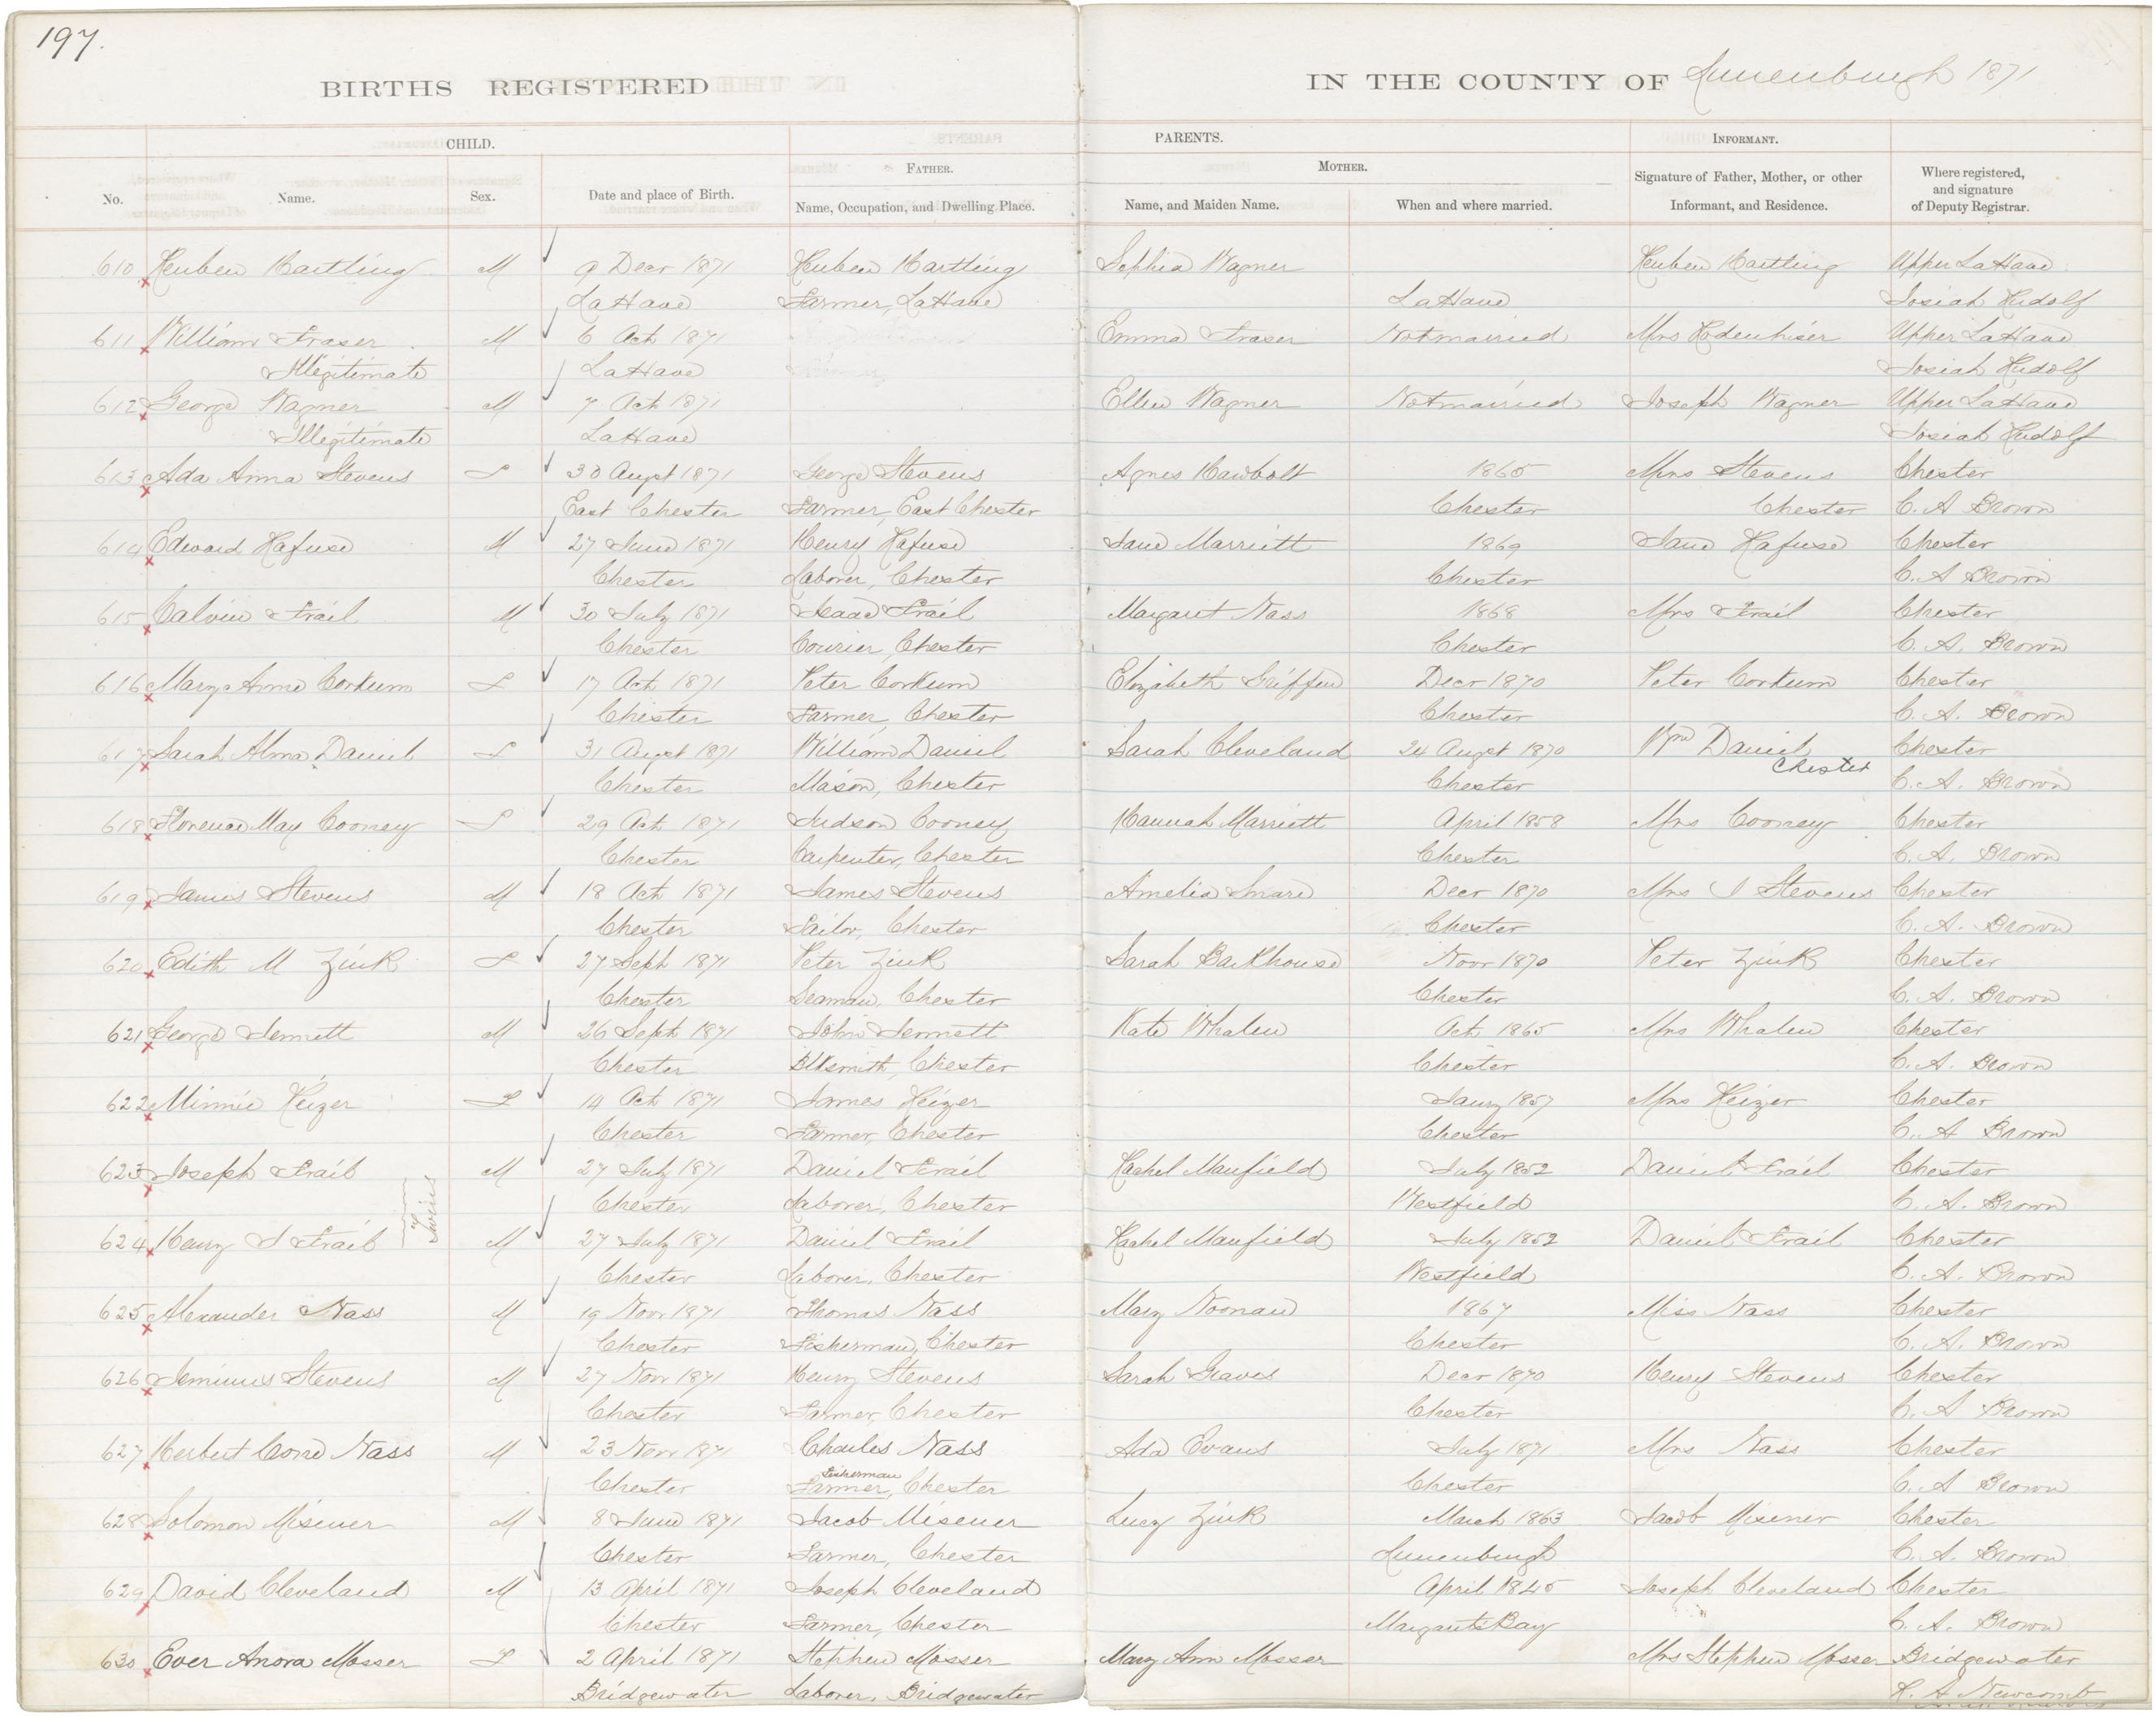 197.
BIRTHS REGISTERED IN THE COUNTY OF Lunenburgh 1871
CHILD. PARENTS. INFORMANT.
FATHER. MOTHER.
No. Name. Sex. Date and place of Birth. Name, Occupation, and Dwelling Place. Name, and Maiden Name. When and where married. Signature of Father, Mother, or other Informant, and Residence. Where registered, and signature of Deputy Registrar.
610 Reuben Hartling M 9 Decr 1871 Reuben Hartling Sophia Wagner Reuben Hartling Upper LaHave
LaHave Farmer, LaHave LaHave Josiah Rudolf
611 William Fraser M 6 Oct 1871 Emma Fraser Not married Mrs Rodenhiser Upper LaHave
Illegitimate LaHave Josiah Rudolf
612 George Wagner M 7 Oct 1871 Ellen Wagner Not married Joseph Wagner Upper LaHave
Illegitimate LaHave Josiah Rudolf
613 Ada Anna Stevens F 30 Augst 1871 George Stevens Agnes Hawbolt 1865 Mrs Stevens Chester
East Chester Farmer, East Chester Chester Chester C. A Brown
614 Edward Hafuse M 27 June 1871 Henry Hafuse Jane Marriett 1869 Jane Hafuse Chester
Chester Laborer, Chester Chester C. A Brown
615 Calvin Frail M 30 July 1871 Isaac Frail Margaret Nass 1868 Mrs Frail Chester
Chester Courier, Chester Chester C. A. Brown
616 Mary Anne Corkum F 17 Oct 1871 Peter Corkum Elizabeth Griffen Decr 1870 Peter Corkum Chester
Chester Farmer, Chester Chester C. A. Brown
617 Sarah Alma Daniel F 31 Augst 1871 William Daniel Sarah Cleveland 24 Augst 1870 Wm Daniel Chester
Chester Mason, Chester Chester Chester C. A. Brown
618 Florence May Cooney F 29 Oct 1871 Judson Cooney Hannah Marriett April 1858 Mrs Cooney Chester
Chester Carpenter, Chester Chester C. A. Brown
619 James Stevens M 18 Oct 1871 James Stevens Amelia Snare Decr 1870 Mrs J Stevens Chester
Chester Sailor, Chester Chester C. A. Brown
620 Edith M Zink F 27 Sept 1871 Peter Zink Sarah Backhouse Novr 1870 Peter Zink Chester
Chester Seaman, Chester Chester C. A. Brown
621 George Sennett M 26 Sept 1871 John Sennett Kate Whalen Oct 1865 Mrs Whalen Chester
Chester Blksmith, Chester Chester C. A. Brown
622 Minnie Heizer F 14 Oct 1871 James Heizer Jany 1857 Mrs Heizer Chester
Chester Farmer, Chester Chester C. A Brown
623 Joseph Frail M 27 July 1871 Daniel Frail Rachel Manfield July 1852 Daniel Frail Chester
Twins
Chester Laborer, Chester Westfield C. A. Brown
624 Henry J Frail M 27 July 1871 Daniel Frail Rachel Manfield July 1852 Daniel Frail Chester
Chester Laborer, Chester Westfield C. A. Brown
625 Alexander Nass M 19 Novr 1871 Thomas Nass Mary Noonan 1867 Miss Nass Chester
Chester Fisherman, Chester Chester C. A. Brown
626 Stevens M 27 Novr 1871 Henry Stevens Sarah Graves Decr 1870 Henry Stevens Chester
Chester Farmer, Chester Chester C. A Brown
627 Herbert Nass M 23 Novr 1871 Charles Nass Ada Evans July 1871 Mrs Nass Chester
Fisherman
Chester Farmer, Chester Chester C. A Brown
628 Solomon Misener M 8 June 1871 Jacob Misener Lucy Zink March 1863 Jacob Misener Chester
Chester Farmer, Chester Lunenburgh C. A. Brown
629 David Cleveland M 13 April 1871 Joseph Cleveland April 1845 Joseph Cleveland Chester
Chester Farmer, Chester Margarets Bay C. A. Brown
630 Ever Anora Mosser F 2 April 1871 Stephen Mosser Mary Ann Mosser Mrs Stephen Mosser Bridgewater
Bridgewater Laborer, Bridgewater Newcomb